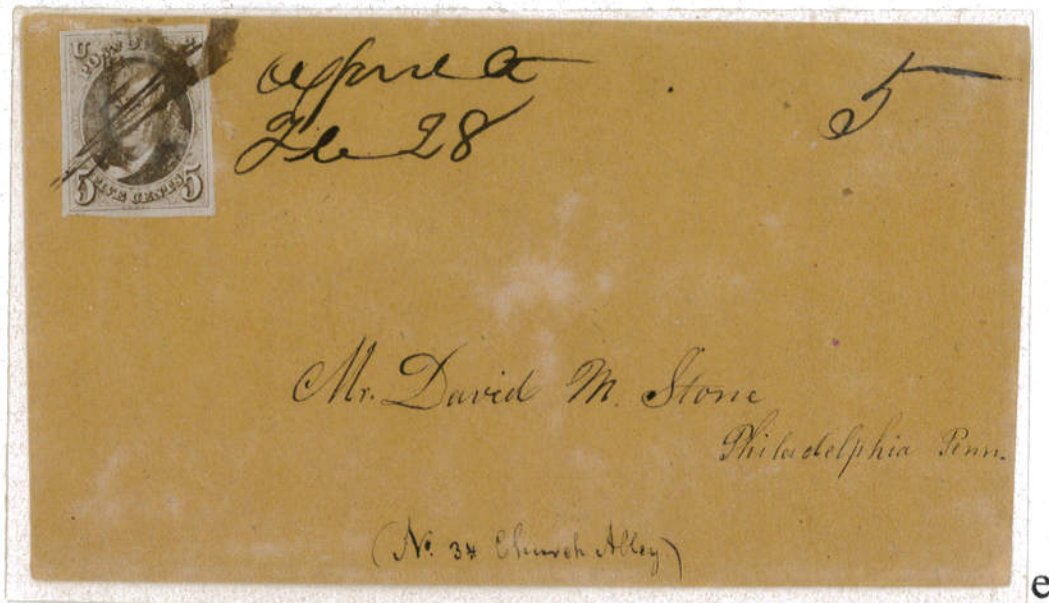 U
POST OFFICE
5 FIVE CENTS 5
Ct
Feb 28
5
Mr. David M. Stone
Philadelphia Penn.
(No. 34 Church Alley)
e